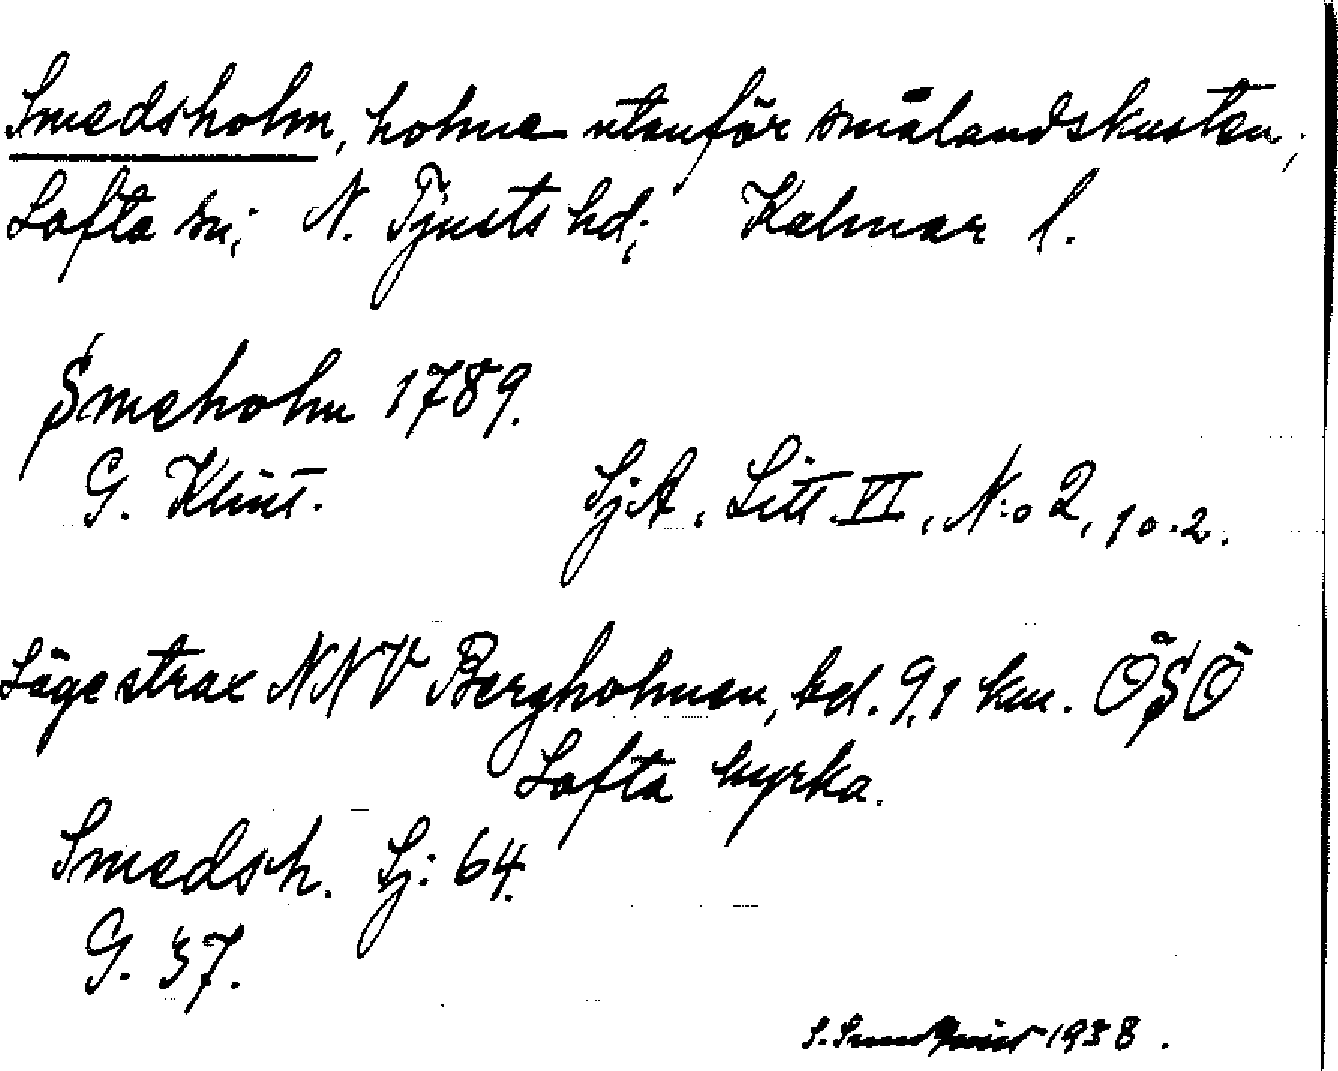 Smedsholm, holme utanför smålandskusten;
Lofta sn; N. Tjusts hd; Kalmar l.
Smeholm 1789.
G. Klint. SjA, Litt. VI, N:o 2, 10.2.
Läge strax NNV Bergholmen, bd. 9,1 km. ÖSÖ
Lofta kyrka.
Smedsh. Sj: 64.
G. 37.
S. 1938.